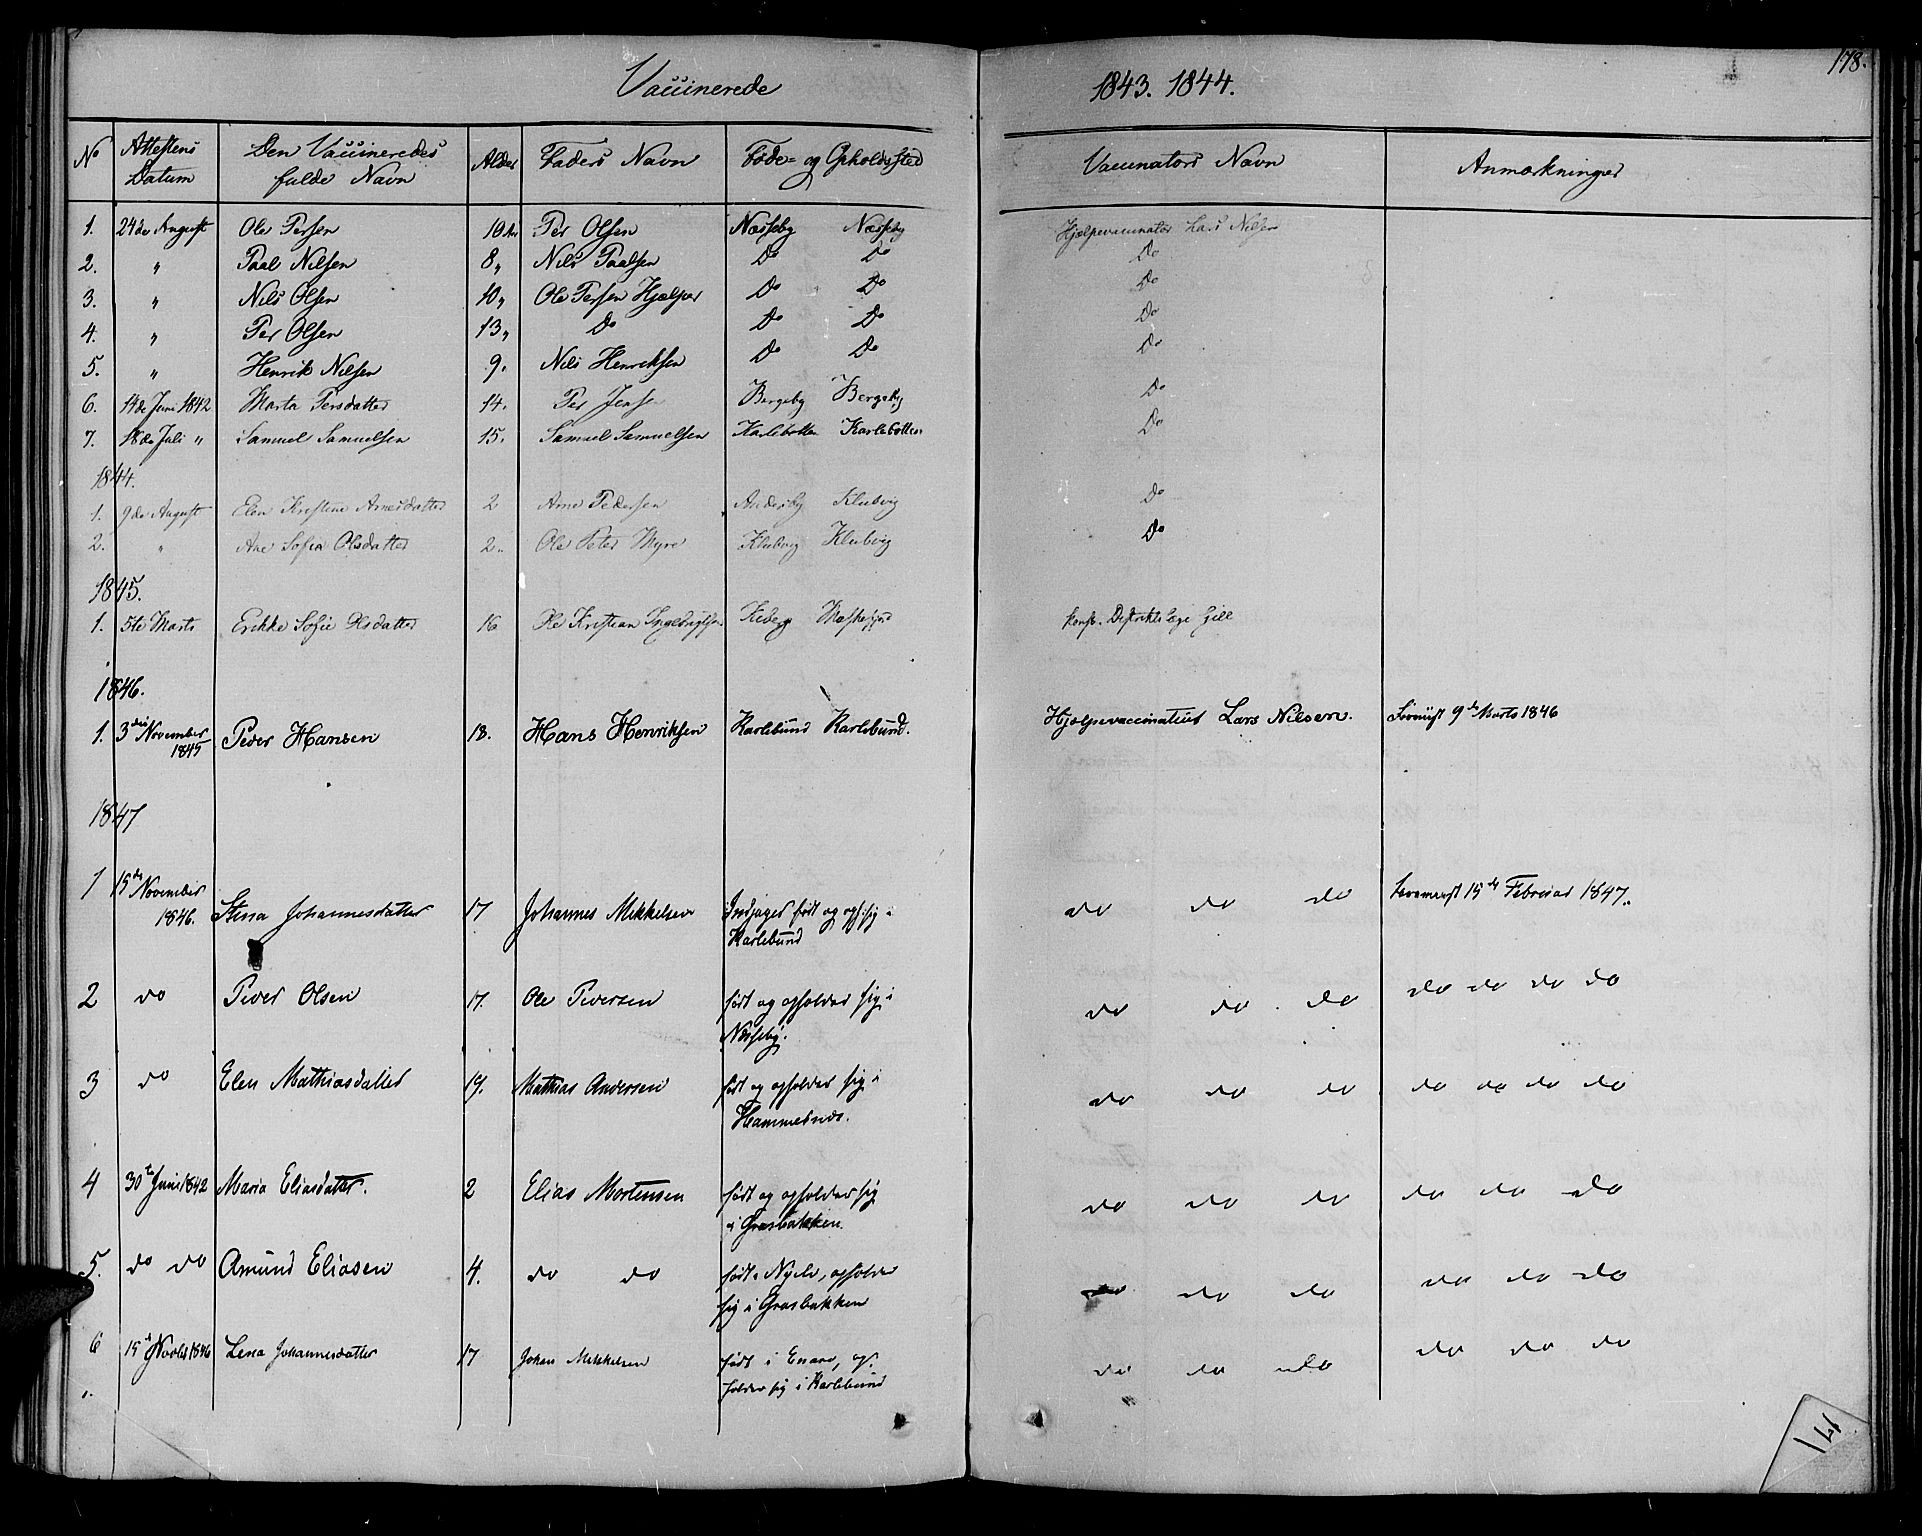 Vaccinerede 1843. 1844. 178.
No | Attestens Datum | Den Vaccineredes fulde Navn | Alder | Faders Navn | Føde- og Opholdssted | Vaccinators Navn | Anmærkninger
1. 24de August Ole Persen 10 Aar Per Olsen Næsseby Næsseby Hjælpevaccinatør Lars Nilsen
2. " Paal Nilsen 8 " Nils Paalsen Do Do Do
3. " Nils Olsen 10 " Ole Persen Hjælper Do Do Do
4. " Per Olsen 13 " Do Do Do Do
5. " Henrik Nilsen 9. Nils Henriksen Do Do Do
6. 14de Juni 1842 Marta Persdatter 14. Per Jensen Bergeby Bergeby Do
7. 18de Juli " Samuel Samuelsen 15. Samuel Samuelsen Karlebotten Karlebotten Do
1844.
1. 9de August Elen Kristine Arnesdatter 2 Arne Pedersen Andersby Klubvig Do
2. " Ane Sofia Olsdatter 2. Ole Peter Myre Klubvig Klubvig Do
1845.
1. 5te Marts Erikke Sofie Olsdatter 16 Ole Kristian Ingebrigtsen Kiberg Const. Distriktslæge Gill
1846.
1. 3die November 1845 Peder Hansen 18. Hans Henriksen Karlebund Karlebund. Hjælpevaccinateur Lars Nilsen. 9de Marts 1846
1847
1 15de November 1846. Stina Johannesdatter 17 Johannes Mikkelsen født og oph. sig i
Karlebund do do do 15de Februar 1847.
2 do Peder Olsen 17. Ole Pedersen født og opholder sig i do do do do do do do
Næsseby.
3 do Elen Mathiasdatter 19. Mathias Andersen født og opholder sig i do do do do do do do
Hammernæs.
4 30te Juni 1842 Maria Eliasdatter. 2 Elias Mortensen født og opholder sig do do do do do do
i Græsbakken.
5. do do Amund Eliasen 4. do do født i Nyelv, opholder do do do do do do
sig i Græsbakken
6 15de Novbr 1846 Lena Johannesdatter 17 Johan Mikkelsen født i Enare, op- do do do do do do
holder sig i Karlebund
141